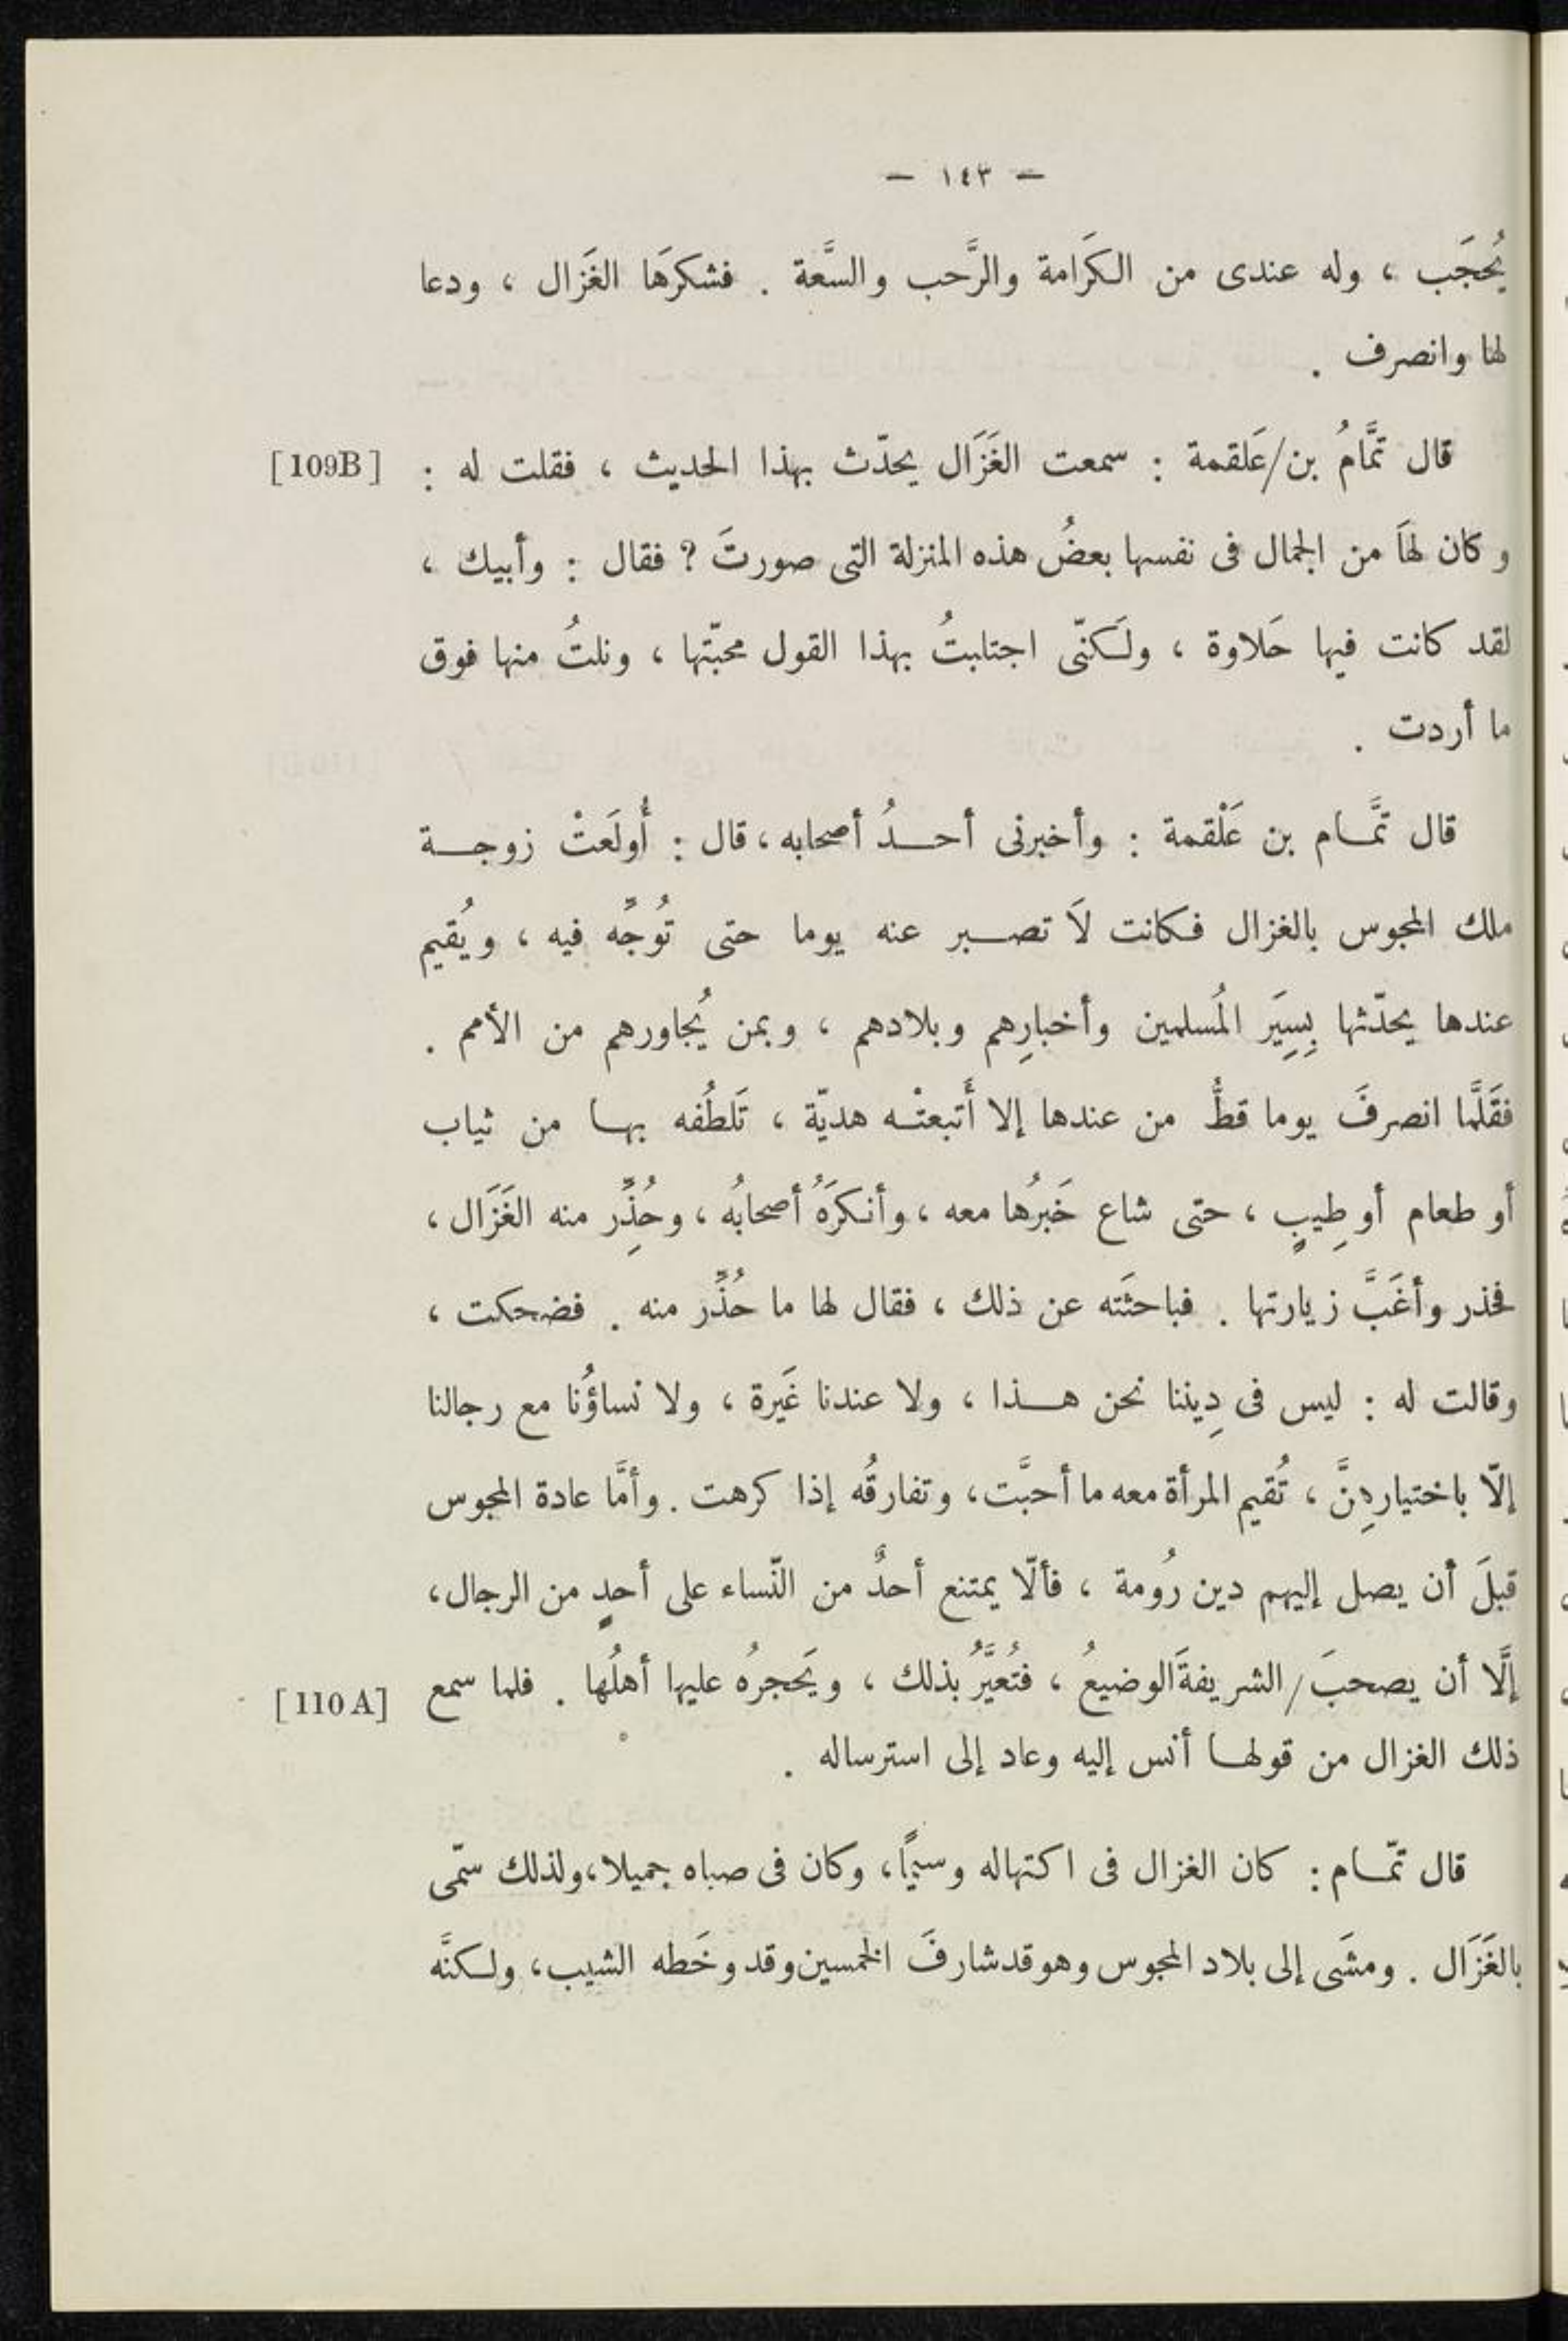 — ١٤٣ —
يُحجَب ، وله عندى من الكَرامة والرَّحب والسَّعة . فشكرَها الغَزال ، ودعا
لها وانصرف .
قال تمَّامُ بن/عَلقمة : سمعت الغَزَال يحدّث بهذا الحديث ، فقلت له : [109B]
وكان لهَا من الجمال فى نفسها بعضُ هذه المنزلة التى صورتَ ؟ فقال : وأبيك ،
لقد كانت فيها حَلاوة ، ولَكنّى اجتلبتُ بهذا القول محبّتها ، ونلتُ منها فوق
ما أردت .
قال تمَّام بن عَلْقمة : وأخبرنى أحدُ أصحابه ، قال : أُولَعتْ زوجة
ملك المجوس بالغزال فكانت لَا تصبر عنه يوما حتى تُوَجِّه فيه ، ويُقيم
عندها يحدّثها بِسِيَر المُسلمين وأخبارِهم وبلادهم ، وبمن يُجاورهم من الأمم .
فقَلَّما انصرفَ يوما قطُّ من عندها إلا أَتبعتْه هديّة ، تَلطُفه بها من ثياب
أو طعام أو طِيبٍ ، حتى شاع خَبرُها معه ، وأنكرَهُ أصحابُه ، وحُذِّر منه الغَزَال ،
فحذر وأغَبَّ زيارتها . فباحثَته عن ذلك ، فقال لها ما حُذِّر منه . فضحكت ،
وقالت له : ليس فى دِيننا نحن هذا ، ولا عندنا غَيرة ، ولا نساؤُنا مع رجالنا
إلّا باختيارهِنَّ ، تُقيم المرأة معه ما أحبَّت ، وتفارقُه إذا كرهت . وأمَّا عادة المجوس
قبلَ أن يصل إليهم دين رُومة ، فألّا يمتنع أحدٌ من النّساء على أحدٍ من الرجال ،
إلَّا أن يصحبَ/الشريفةَ الوضيعُ ، فتُعيَّرُ بذلك ، ويَحجرُه عليها أهلُها . فلما سمع [110A]
ذلك الغزال من قولها أنس إليه وعاد إلى استرساله .
قال تمّام : كان الغزال فى اكتهاله وسيمًا ، وكان فى صباه جميلا ، ولذلك سمّى
بالغَزَال . ومشَى إلى بلاد المجوس وهو قد شارفَ الخمسين وقد وخَطه الشيب ، ولكنَّه